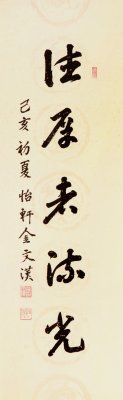 德厚者流光
己亥初夏怡軒金文漢